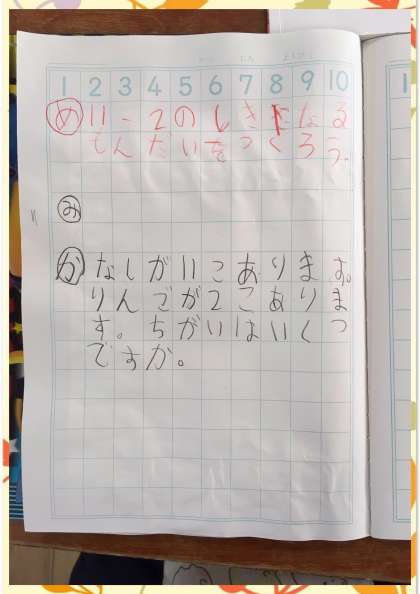 1 2 3 4 5 6 7 8 9 10
め 11-2のしきになる
もんだいをつくろう。
み
か なしが11こあります。
りんごが2こありま
す。ちがいはいくつ
ですか。